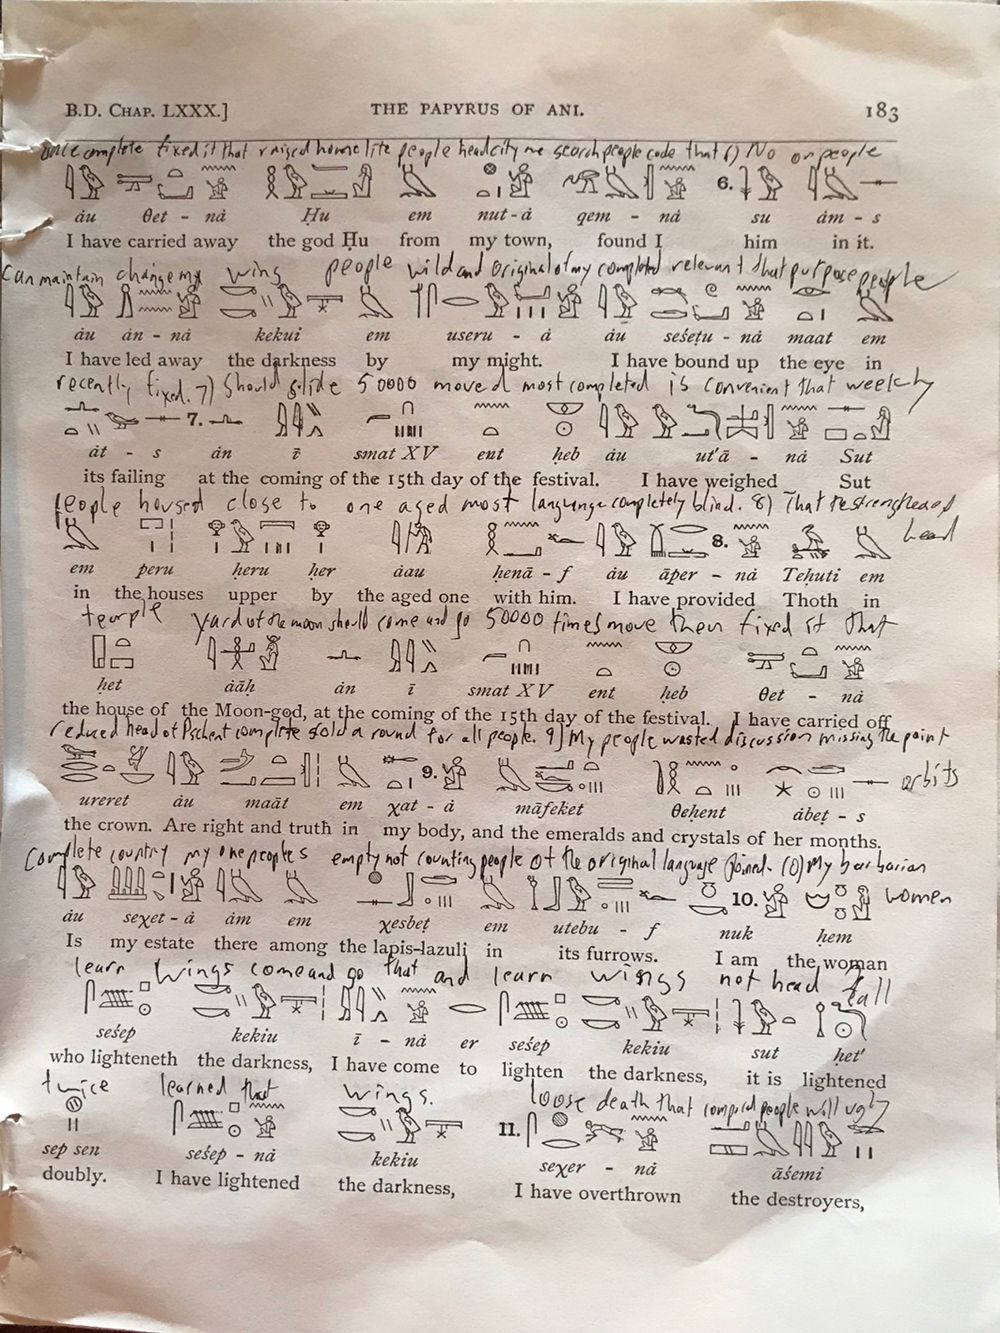 B.D. CHAP. LXXX.] THE PAPYRUS OF ANI. 183
once complete fixed it that raised home lite people head city me search people code that () No or people
6.
áu θet - ná Ḥu em nut-á qem - ná su ám - s
I have carried away the god Ḥu from my town, found I him in it.
can maintain change my wing people wild and original of my completed relevant that purpose people
áu án - ná kekui em useru - á áu seśeṭu - ná maat em
I have led away the darkness by my might. I have bound up the eye in
recently fixed. 7) Should glide 50000 moved most completed is convenient that weekly
7.
át - s án ī smat XV ent ḥeb áu ut'ā - ná Sut
its failing at the coming of the 15th day of the festival. I have weighed Sut
people housed close to one aged most language completely blind. 8) That the strengthened head
8.
em peru ḥeru ḥer áau ḥenā - f áu āper - ná Teḥuti em
in the houses upper by the aged one with him. I have provided Thoth in
temple yard of the moon should come and go 50000 times move then fixed it that
ḥet ááḥ án ī smat XV ent ḥeb θet - ná
the house of the Moon-god, at the coming of the 15th day of the festival. I have carried off
reduced head of Pschent complete gold a round for all people. 9) My people wasted discussion missing the point orbits
9.
ureret áu maāt em χat - á māfeket θeḥent ábeṭ - s
the crown. Are right and truth in my body, and the emeralds and crystals of her months.
Complete country my one peoples empty not counting people of the original language joined. 10) My barbarian women
10.
áu seχet - á ám em χesbeṭ em utebu - f nuk ḥem
Is my estate there among the lapis-lazuli in its furrows. I am the woman
learn wings come and go that and learn wings not head fall
seśep kekiu ī - ná er seśep kekiu sut ḥet'
who lighteneth the darkness, I have come to lighten the darkness, it is lightened
twice learned that wings. loose death that compiled people will ugly
11.
sep sen seśep - ná kekiu seχer - ná āśemi
doubly. I have lightened the darkness, I have overthrown the destroyers,